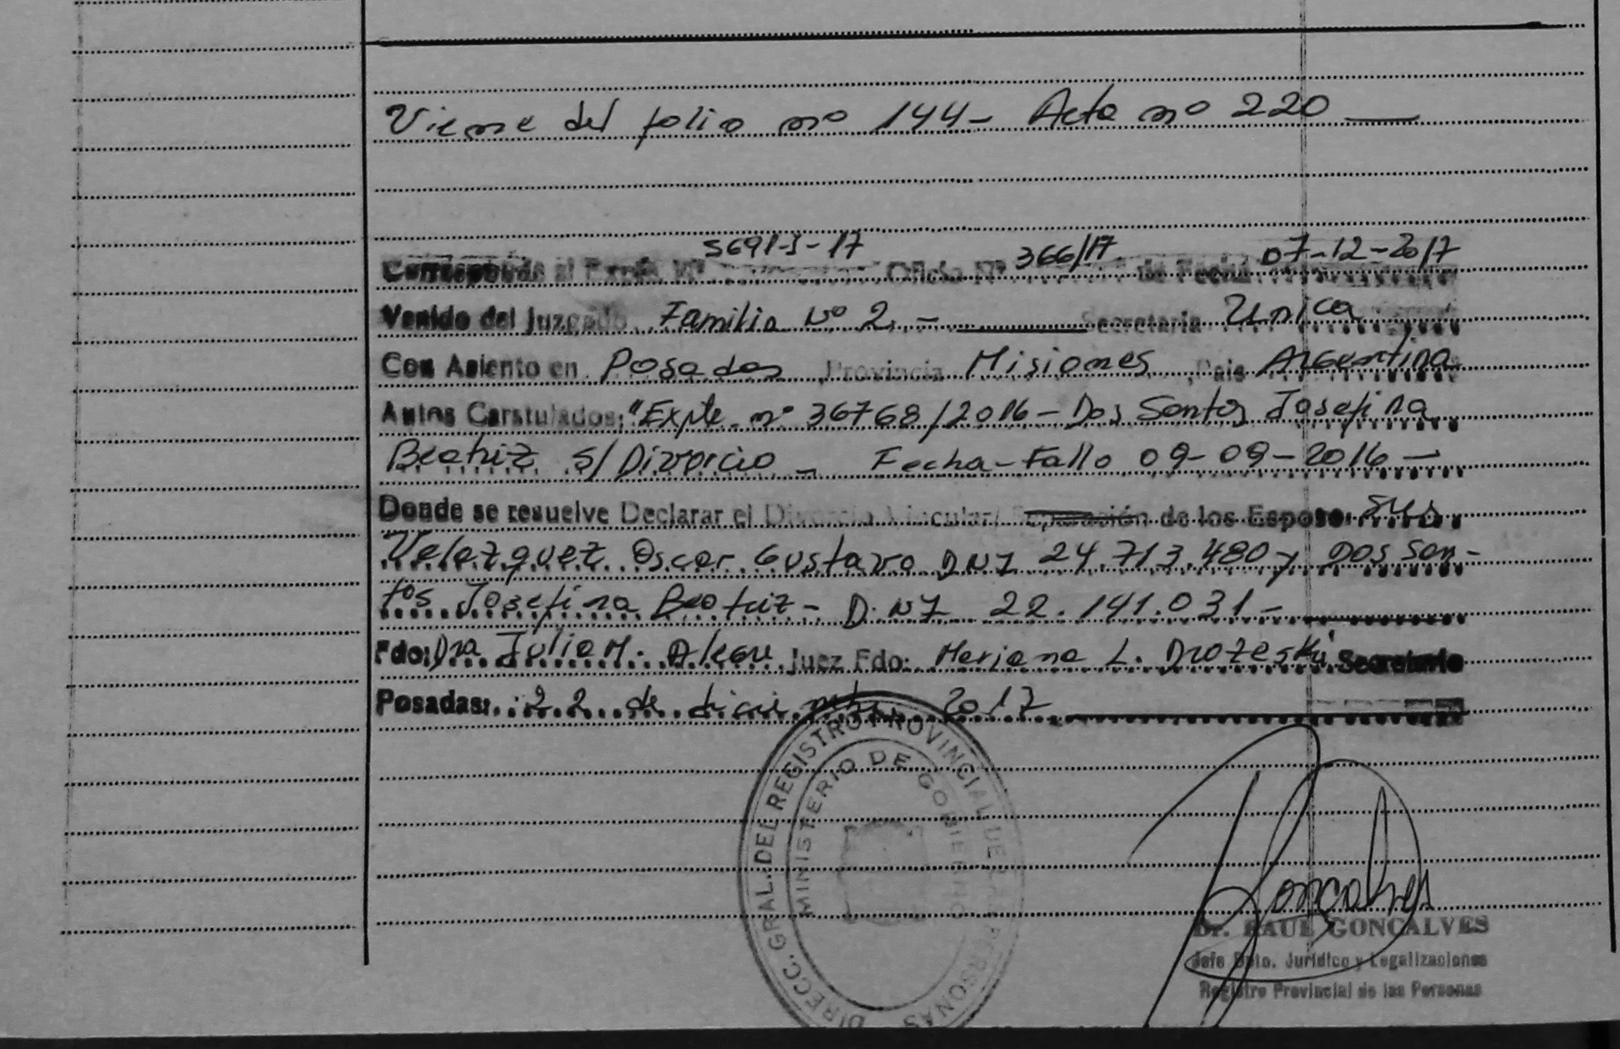 Viene del folio nº 144- Acta nº 220
Corresponde al Expte. Nº 5691-J-17 Oficio Nº 366/17. de Fecha 07-12-2017
Venido del Juzgado Familia Nº 2.- Secretaria Unica
Con Asiento en Posadas Provincia Misiones, Pais Argentina
Autos Carstulados: "Expte. nº 36768/2016- Dos Santos Josefina
Beatriz s/ Divorcio - Fecha-Fallo 09-09-2016-
Donde se resuelve Declarar el Divorcio Vincular/ Separación de los Esposos:
Velezquez Oscar Gustavo DNI 24.713.480 y Dos San-
tos Josefina Beatriz- D.NI 22.141.031-
Fdo: Dra Julia M. Alegre Juez Fdo: Meriana L. Drozeski Secretario
Posadas: 22 de diciembre 2017
DIRECC. GRAL. DEL REGISTRO PROVINCIAL DE LAS PERSONAS
MINISTERIO DE GOBIERNO
Gonçalves
Dr. RAUL GONCALVES
Jefe Dpto. Jurídico y Legalizaciones
Registro Provincial de las Personas